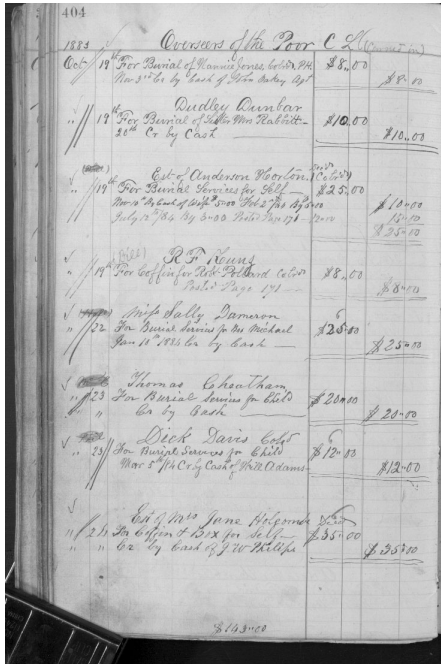 404
1883 Overseers of the Poor C L
Oct 19th For Burial of Jones, P.H. $8.00
Nov 3rd Cr by Cash of Oakey Agt $8.00
Dudley Dunbar
" 19th For Burial of Mrs Rabbitt $10.00
20th Cr by Cash $10.00
Est of Anderson Horton
" 19th For Burial Services for Self $25.00
Nov 10th By Cash of $10.00
July 12th /84 By Posted Page 171
$25.00
R F
" 19th For Coffin for Robt Pollard $8.00
Posted Page 171 $8.00
Miss Sally Dameron
" 22 For Burial Services for Mrs Michael $25.00
Jan 10th 1884 Cr by Cash $25.00
Thomas Cheatham
" 23 For Burial Services for Child $20.00
" " Cr by Cash $20.00
Dick Davis Cold
" 23 For Burial Services for Child $12.00
Mar 5th /84 Cr by Cash of Will Adams $12.00
Est of Mrs Jane Holcomb
" 24 For Coffin & Box for Self $35.00
" " Cr by Cash of J W Phillips $35.00
$143.00